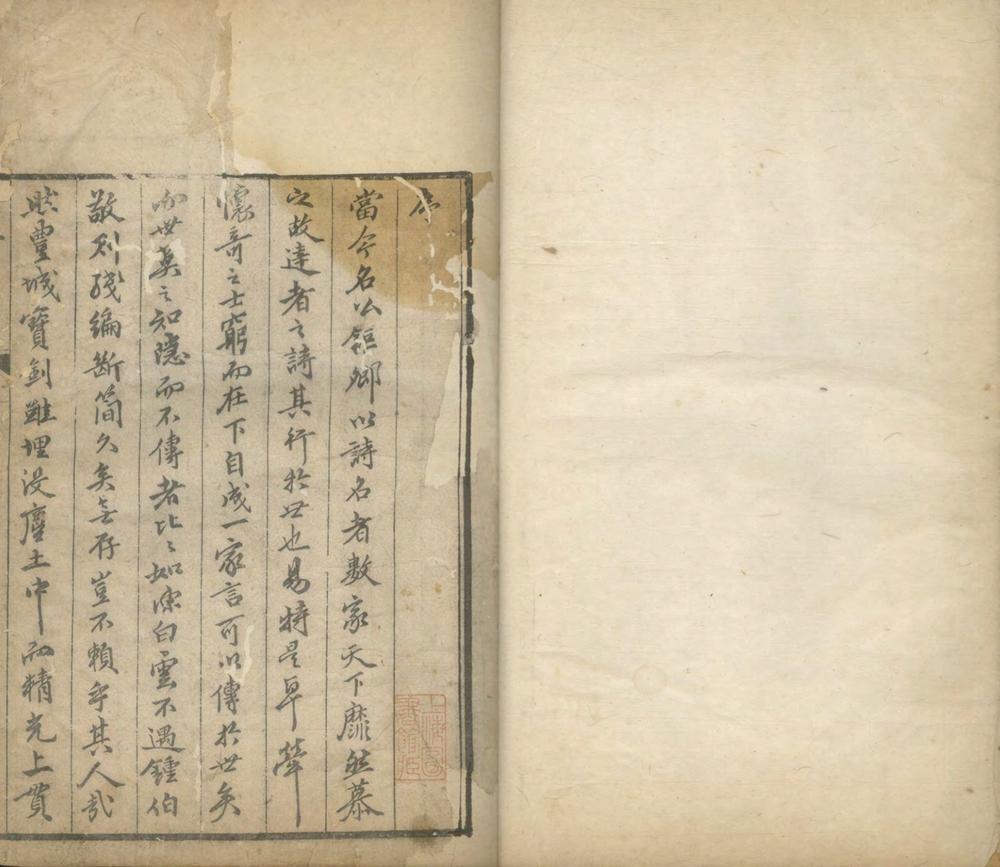 序
當今名公鉅卿以詩名者數家天下靡然慕
之故達者之詩其行於世也易特是卑犖
懷奇之士窮而在下自成一家言可以傳於世矣
而世莫之知隱而不傳者比〻如深白雲不遇鍾伯
敬則殘編斷簡久矣無存豈不賴乎其人哉
然豐城寶劍雖埋没塵土中而精光上貫
上海圖書館藏